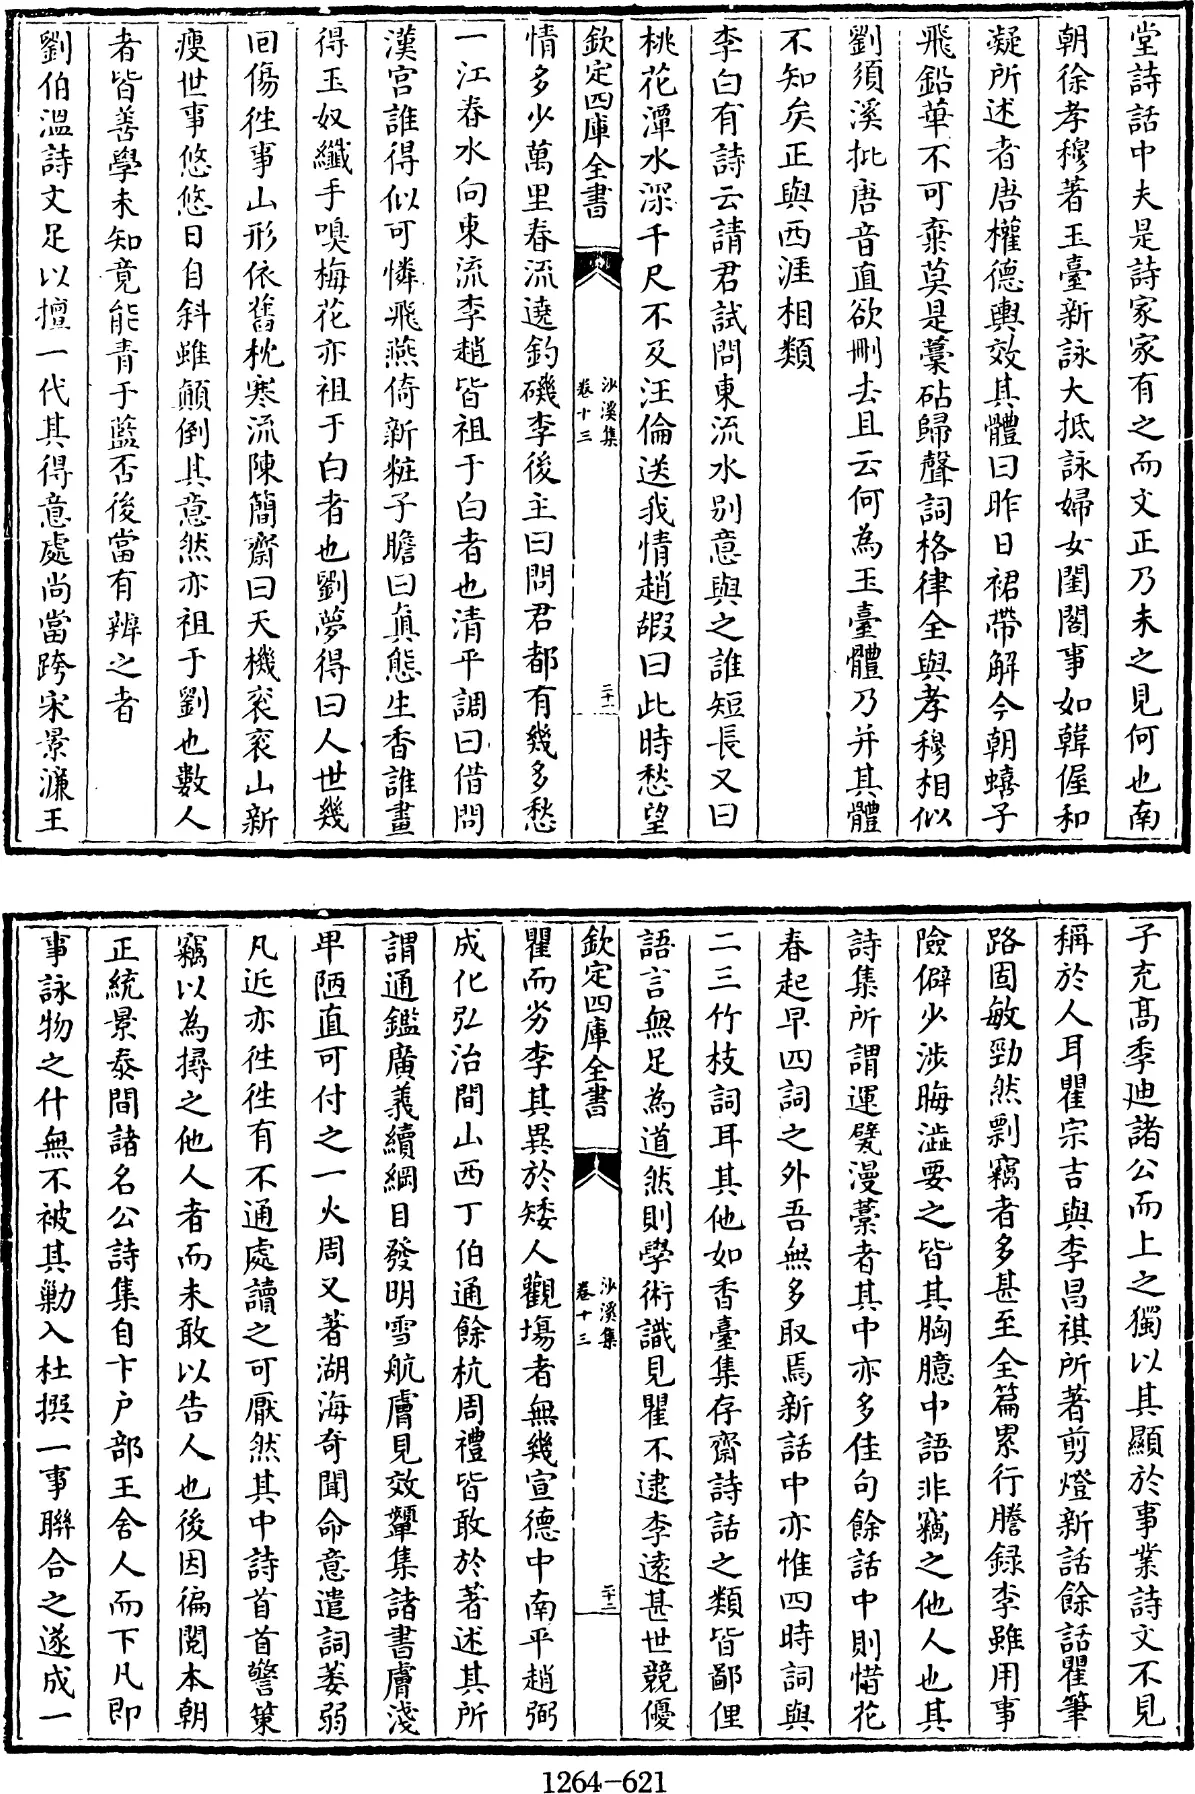 堂詩話中夫是詩家家有之而文正乃未之見何也南
朝徐孝穆著玉臺新詠大抵詠婦女閨閣事如韓偓和
凝所述者唐權德輿效其體曰昨日裙帶解今朝蟢子
飛鉛華不可棄莫是藁砧歸聲詞格律全與孝穆相似
劉須溪批唐音直欲刪去且云何為玉臺體乃并其體
不知矣正與西涯相類
李白有詩云請君試問東流水别意與之誰短長又曰
桃花潭水深千尺不及汪倫送我情趙嘏曰此時愁望
欽定四庫全書
沙溪集
卷十三
二十一
情多少萬里春流遶釣磯李後主曰問君都有幾多愁
一江春水向東流李趙皆祖于白者也清平調曰借問
漢宫誰得似可憐飛燕倚新粧子瞻曰真態生香誰畫
得玉奴纖手嗅梅花亦祖于白者也劉夢得曰人世幾
回傷徃事山形依舊枕寒流陳簡齋曰天機衮衮山新
瘦世事悠悠日自斜雖顛倒其意然亦祖于劉也數人
者皆善學未知竟能青于藍否後當有辨之者
劉伯溫詩文足以擅一代其得意處尚當跨宋景濂王
子充髙季廸諸公而上之獨以其顯於事業詩文不見
稱於人耳瞿宗吉與李昌祺所著剪燈新話餘話瞿筆
路固敏勁然剽竊者多甚至全篇累行謄録李雖用事
險僻少涉晦澁要之皆其胸臆中語非竊之他人也其
詩集所謂運甓漫藁者其中亦多佳句餘話中則惜花
春起早四詞之外吾無多取焉新話中亦惟四時詞與
二三竹枝詞耳其他如香臺集存齋詩話之類皆鄙俚
語言無足為道然則學術識見瞿不逮李遠甚世競優
欽定四庫全書
沙溪集
卷十三
二十二
瞿而劣李其異於矮人觀塲者無幾宣德中南平趙弼
成化弘治間山西丁伯通餘杭周禮皆敢於著述其所
謂通鑑廣義續綱目發明雪航膚見效顰集諸書膚淺
卑陋直可付之一火周又著湖海奇聞命意遣詞萎弱
凡近亦徃徃有不通處讀之可厭然其中詩首首警䇿
竊以為撏之他人者而未敢以告人也後因徧閲本朝
正統景泰間諸名公詩集自卞户部王舍人而下凡即
事詠物之什無不被其勦入杜撰一事聯合之遂成一
1264-621